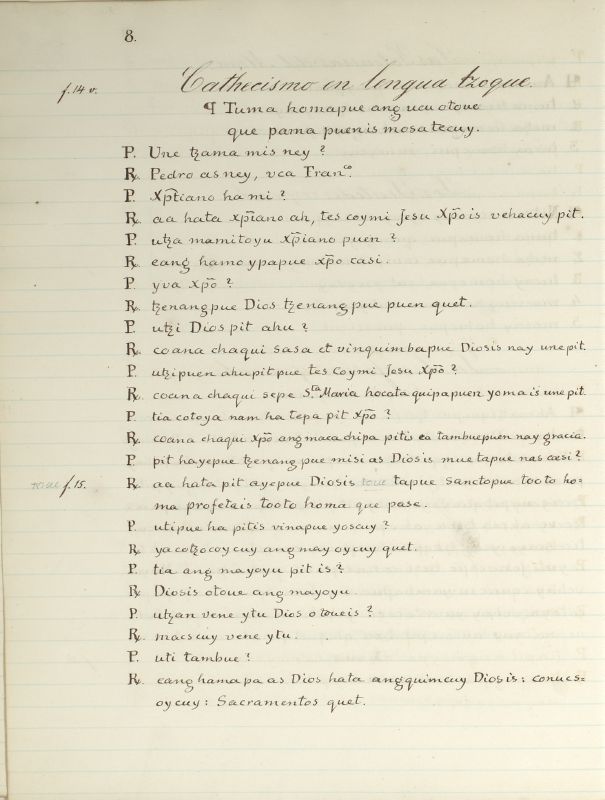 8.
f. 14 v. Cathecismo en lengua tzoque.
¶ Tuma homapue ang ucu otoue
que pama puenis mosatecuy.
P. Une tzama mis ney?
R. Pedro as ney, vca Tranco.
P. Xp̄tiano ha mi?
R. aa hata xp̄iano ah, tes coymi Jesu Xp̄o is vehacuy pit.
P. utza mamitoyu xp̄iano puen?
R. eang hamo ypapue xp̄o casi.
P. yva xp̄o?
R. tzenangpue Dios tzenang pue puen quet.
P. utzi Dios pit ahu?
R. coana chaqui sasa et vinquimbapue Diosis nay unepit.
P. utzipuen ahupit pue tes coymi Jesu Xp̄o?
R. coana chaqui sepe Sta. Maria hocata quipapuen yomais unepit.
P. tia cotoya nam ha tepa pit xp̄o?
R. coana chaqui xp̄o angmaca chipa pitis ea tambuepuen nay gracia.
P. pit hayepue tzenang pue misi as Diosis mue tapue nas casi?
toue f. 15. R. aa hata pit ayepue Diosis toue tapue sanctopue tooto ho=
ma profetais tooto homa que pase.
P. utipue ha pitis vinapue yoscuy?
R. ya cotzocoycuy ang may oycuy quet.
P. tia ang mayoyu pit is?
R. Diosis otoue ang mayoyu.
P. utzan vene ytu Dios otoueis?
R. macscuy vene ytu.
P. uti tambue?
R. eang hamapa as Dios hata angquimcuy Diosis: conucs=
oycuy: Sacramentos quet.